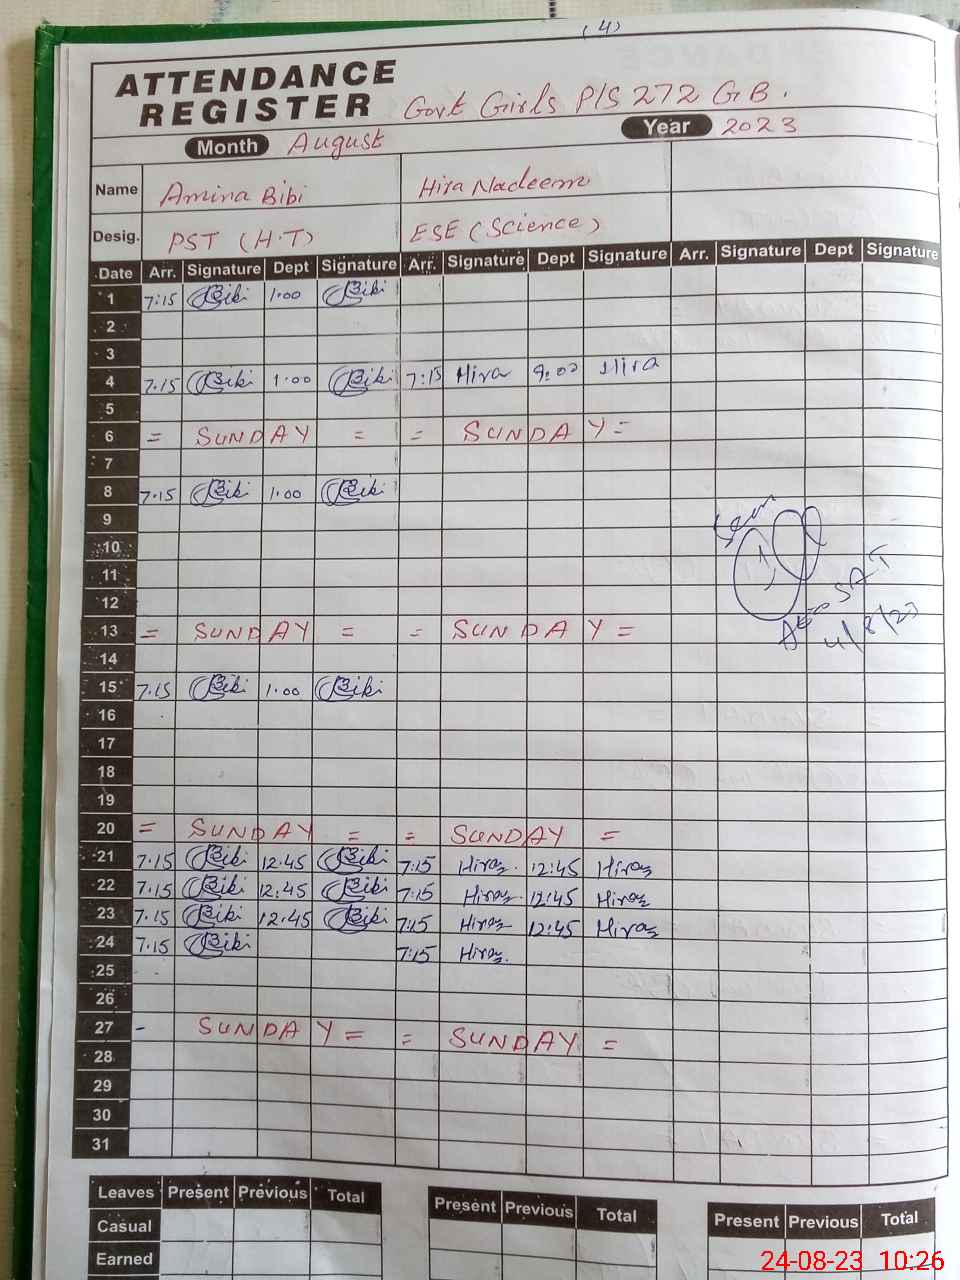 (4)
ATTENDANCE
REGISTER Govt Girls P/S 272 G.B.
Month August Year 2023
Name Amina Bibi Hira Nadeem
Desig. PST (H.T) ESE (Science)
Date Arr. Signature Dept Signature Arr. Signature Dept Signature Arr. Signature Dept Signature
1 7:15 Bibi 1.00 Bibi
2
3
4 7.15 Bibi 1.00 Bibi 7:15 Hira 9:00 Hira
5
6 = SUNDAY = = SUNDAY =
7
8 7.15 Bibi 1.00 Bibi
9
10
11
12
13 = SUNDAY = = SUNDAY =
14
15 7.15 Bibi 1.00 Bibi
16
17
18
19
20 = SUNDAY = = SUNDAY =
21 7.15 Bibi 12.45 Bibi 7:15 Hira 12:45 Hira
22 7.15 Bibi 12.45 Bibi 7:15 Hira 12:45 Hira
23 7.15 Bibi 12.45 Bibi 7:15 Hira 12:45 Hira
24 7.15 Bibi 7:15 Hira
25
26
27 - SUNDAY = = SUNDAY =
28
29
30
31
Seen
AEO SAT
4/8/23
Leaves Present Previous Total Present Previous Total Present Previous Total
Casual
Earned
24-08-23 10:26